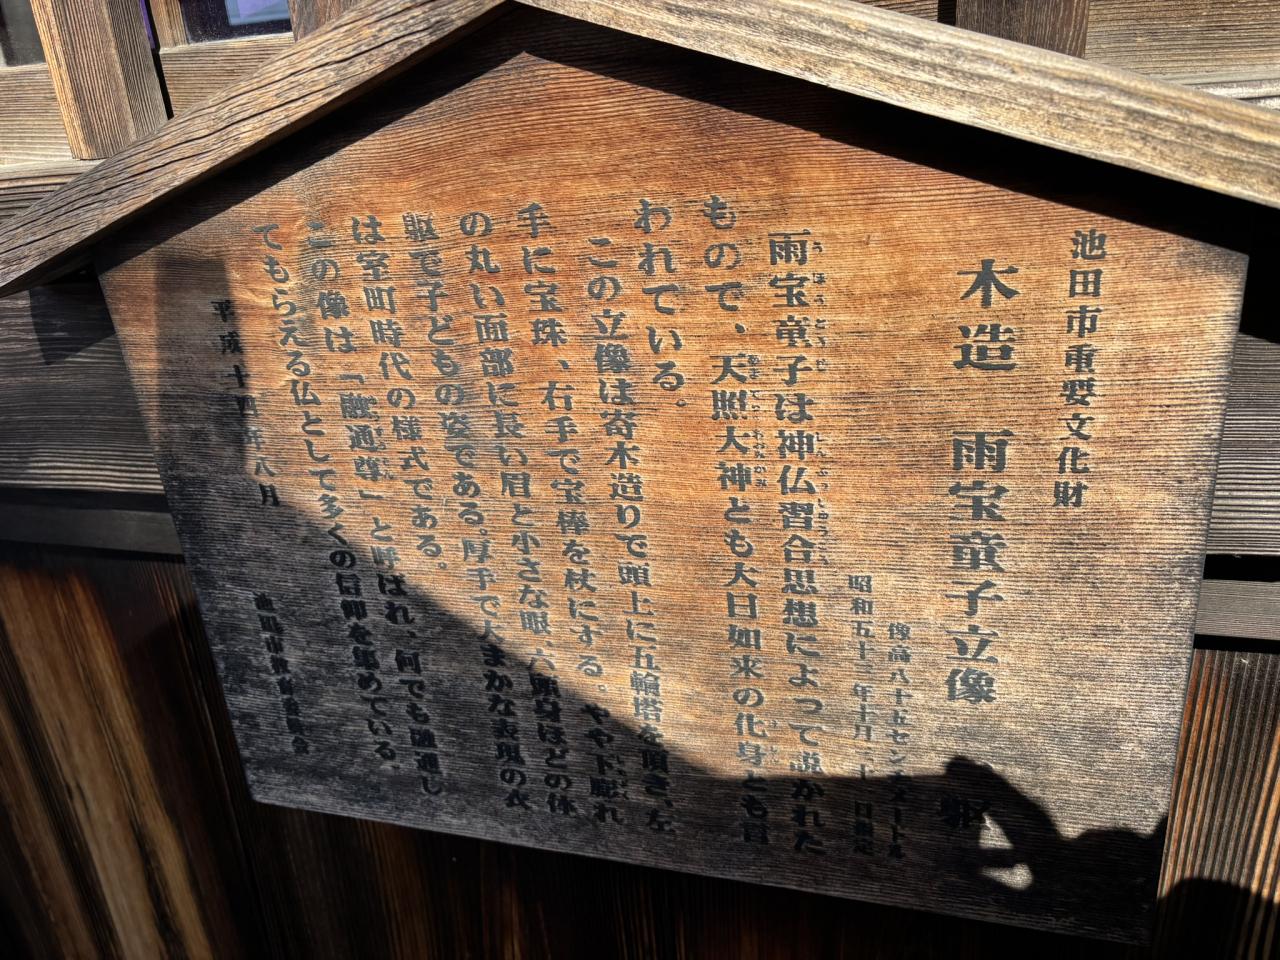 池田市重要文化財
木造 雨宝童子立像 一躯
像高八十五センチメートル
昭和五十三年十月三十一日指定
雨宝童子は神仏習合思想によって説かれた
もので、天照大神とも大日如来の化身とも言
われている。
この立像は寄木造りで頭上に五輪塔を頂き、左
手に宝珠、右手で宝棒を杖にする。やや下膨れ
の丸い面部に長い眉と小さな眼、六頭身ほどの体
躯で子どもの姿である。厚手で大まかな表現の衣
は室町時代の様式である。
この像は「融通尊」と呼ばれ、何でも融通し
てもらえる仏として多くの信仰を集めている。
平成十四年八月
池田市教育委員会